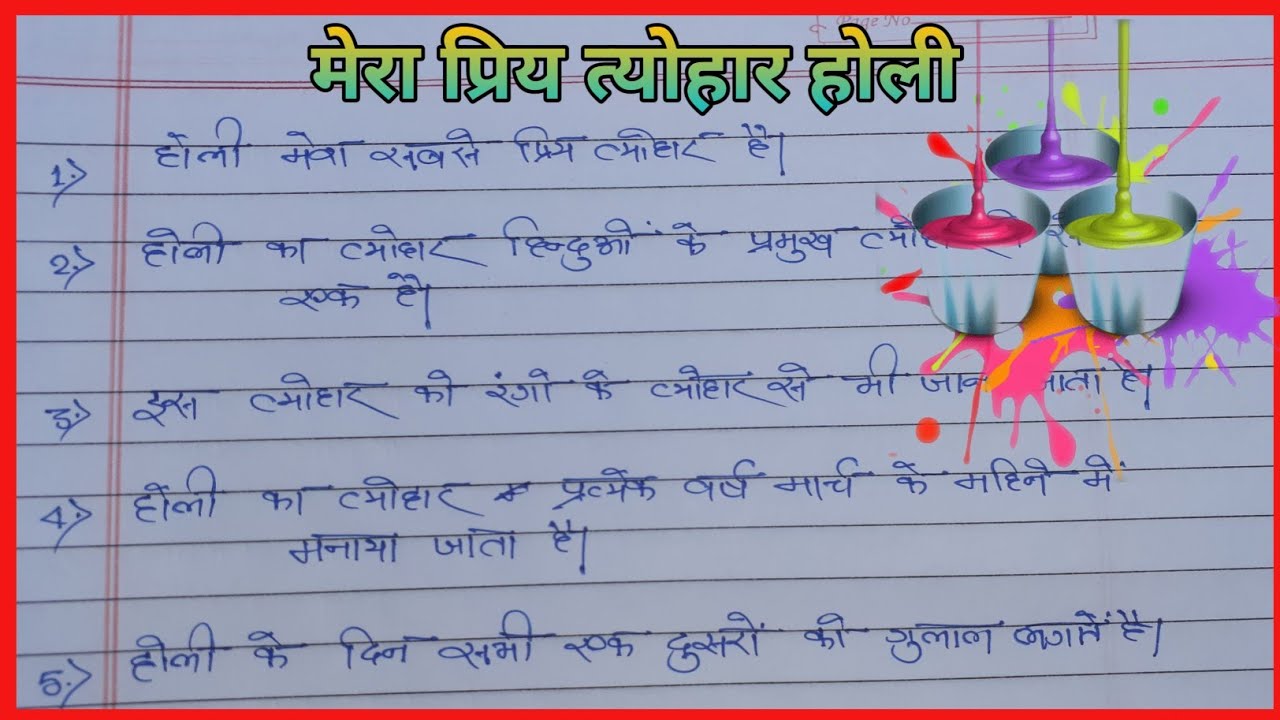 Page No
मेरा प्रिय त्योहार होली
1:> होली मेरा सबसे प्रिय त्योहार है।
2:> होली का त्योहार हिन्दुओं के प्रमुख
एक है।
3:> इस त्योहार को रंगो के त्योहार से भी जाता है।
4:> होली का त्योहार प्रत्येक वर्ष मार्च के महिने में
मनाया जाता है।
5:> होली के दिन सभी एक दुसरों को गुलाल लगातें है।